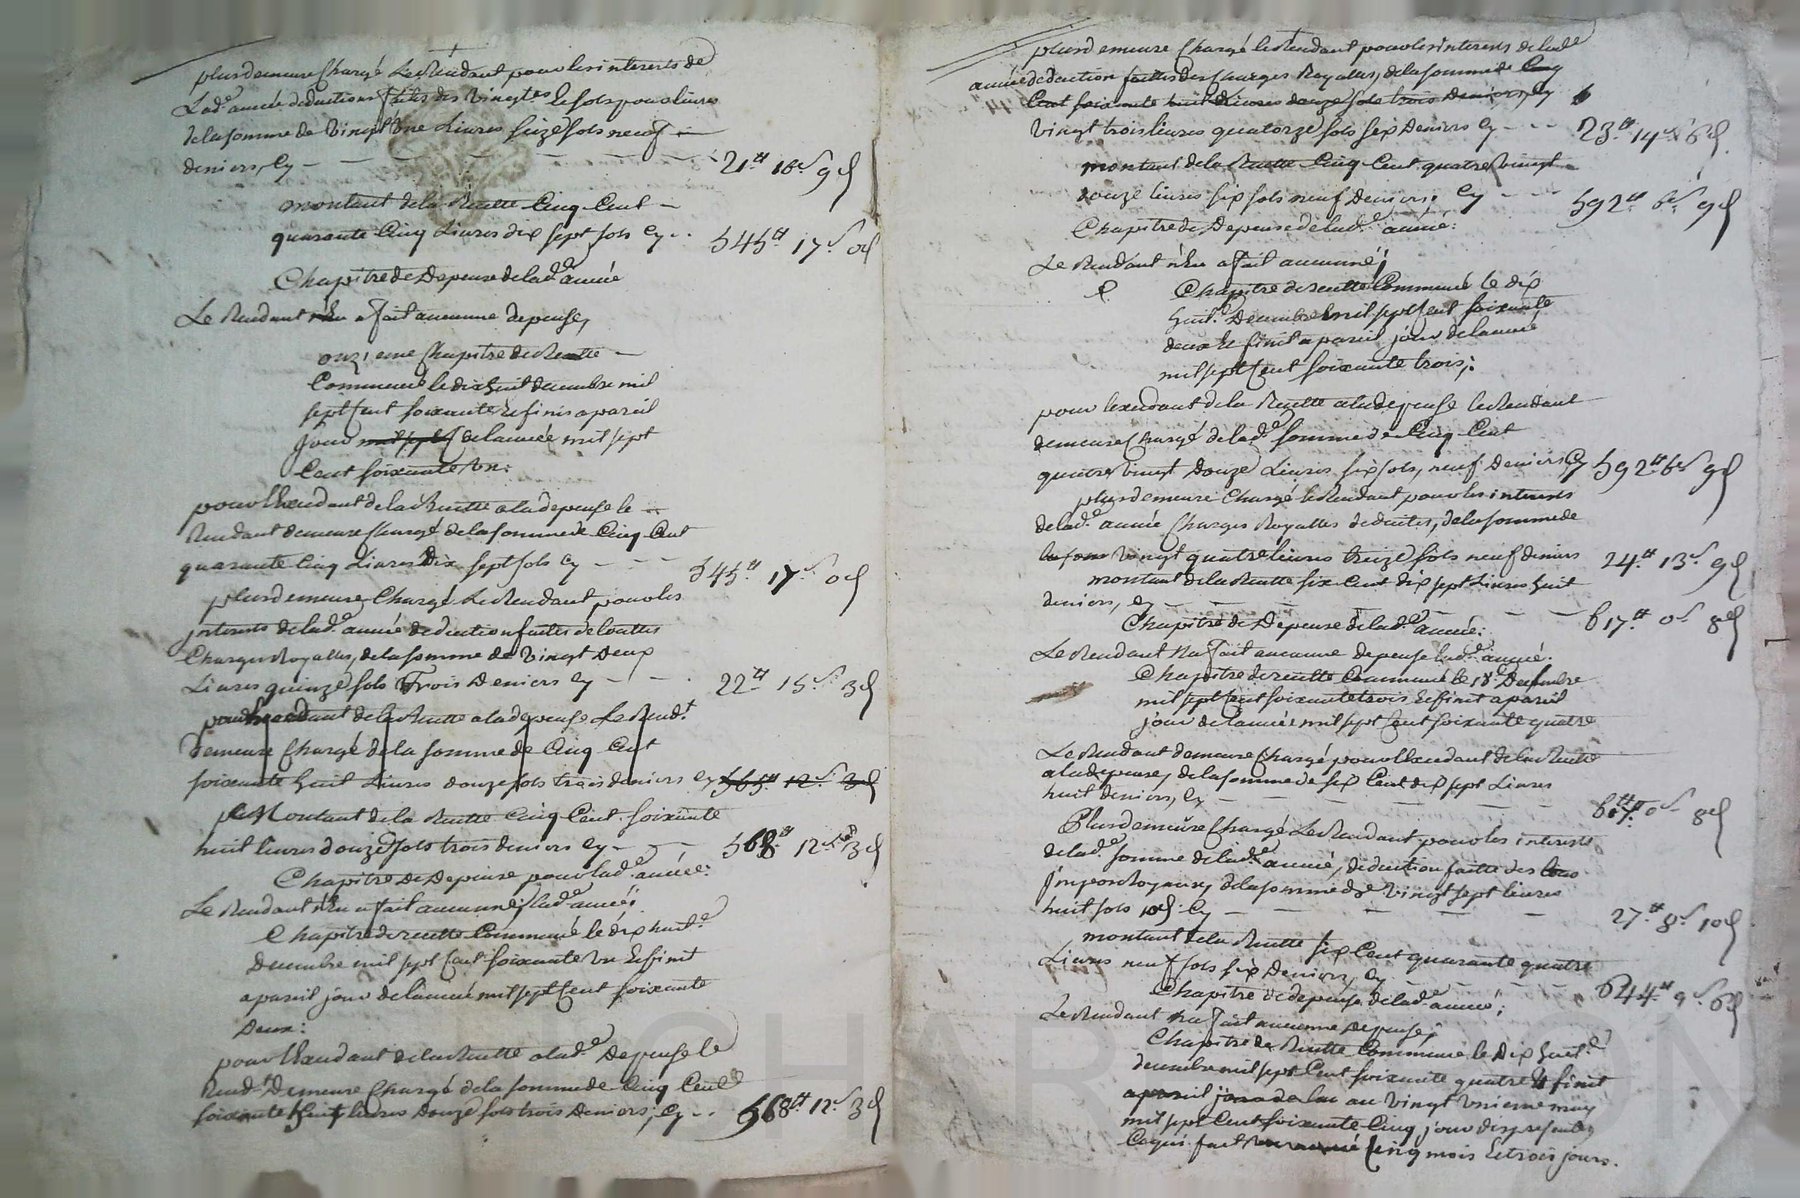 plus demeure Chargé Le Rendant pour les interests de
Lad.e année deductions faites des vingt.es Le sols pour livres
de la somme de Vingt Une Livres seize sols neuf
deniers, Cy - - - 21.tt 16.s 9d
montant de la Recette Cinq Cent
quarante Cinq Livres dix sept sols Cy - - 545.tt 17.s 0d
Chapitre de Depense de lad.e année
Le Rendant n'En a fait aucunne depense,
onzieme Chapitre de Recette
Commencé le dix huit decembre mil
sept Cent soixante Et finis a pareil
jour mil sept de l'année mil sept
Cent soixante Un :
pour l'Excedant de la Recette a la depense le
Rendant demeure Chargé de la somme de Cinq Cent
quarante Cinq Livres Dix sept sols Cy - - - 545.tt 17.s 0d
plus demeure Chargé Le Rendant pour les
interests de lad.e année deduction faites de touttes
Charges Royalles, de la somme de Vingt Deux
Livres quinze sols Trois Deniers Cy - - 22.tt 15.s 3d
pour l'Excedant de la Recette a la depense Le Rend.t
Demeure Chargé de la somme de Cinq Cent
soixante huit Livres douze sols trois deniers Cy 568.tt 12.s 3d
Montant de la Recette Cinq Cent soixante
huit livres douze sols trois deniers Cy - - 568.tt 12.s 3d
Chapitre De Depense pour lad.e année :
Le Rendant n'En a fait aucunne, lad.e année
Chapitre de recette Commencé le dix huit.e
Decembre mil sept Cent soixante Un Et finit
a pareil jour de l'année mil sept Cent soixante
Deux :
pour l'Excedant de la Recette a lad.e Depense le
Rend.t Demeure Chargé de la somme de Cinq Cent
soixante huit livres Douze sols trois Deniers, Cy - - 568.tt 12.s 3d
plus demeure Chargé le Rendant pour les interests de lad.e
année deduction faittes des Charges Royalles, de la somme de Cinq
Cent soixante huit Livres douze sols trois Deniers, Cy
Vingt trois livres quatorze sols six Deniers Cy - - - 23.tt 14.s 6d
montant de la Recette Cinq Cent quatre vingt
douze livres six sols neuf Deniers, Cy - - - 592.tt 6.s 9d
Chapitre de Depense de lad.e année :
Le Rendant n'En a fait aucunne ;
Chapitre de recette Commencé le dix
huit.e Decembre mil sept Cent soixante
deux Et finit a pareil jour de l'année
mil sept Cent soixante trois ;
pour l'exedant de la Recette a la depense le Rendant
demeure Chargé de lad.e somme de Cinq Cent
quatre vingt Douze Livres six sols, neuf Deniers Cy 592.tt 6.s 9d
plus demeure Chargé le Rendant pour les interests
de lad.e année Charges Royalles deduites, de la somme de
Vingt quatre livres treize sols neuf deniers 24.tt 13.s 9d
montant de la Recette six Cent dix sept Livres huit
deniers, Cy - - - 617.tt 0.s 8d
Chapitre de Depense de lad.e année :
Le Rendant n'a fait aucunne depense lad.e année.
Chapitre de recette Commencé le 18.e Decembre
mil sept Cent soixante trois Et finit a pareil
jour de l'année mil sept Cent soixante quatre
Le Rendant demeure Chargé pour l'Excedant de la Recette
a la depense, de la somme de six Cent dix sept Livres
huit deniers, Cy - - - 617.tt 0.s 8d
Plus demeure Chargé Le Rendant pour les interests
de lad.e somme de lad.e année, deduction faitte des
impots Royaux, de la somme de Vingt sept livres
huit sols 10d Cy - - - 27.tt 8.s 10d
montant de la Recette six Cent quarante quatre
Livres neuf sols six Deniers, Cy - - - 644.tt 9.s 6d
Chapitre de depense de lad.e année ;
Le Rendant n'a fait aucunne Depense ;
Chapitre de Recette Commencé le Dix huit.e
decembre mil sept Cent soixante quatre Et finit
a pareil jour de lau au Vingt Unieme may
mil sept Cent soixante Cinq jour des presentes
Ce qui fait Cinq mois Et trois jours.